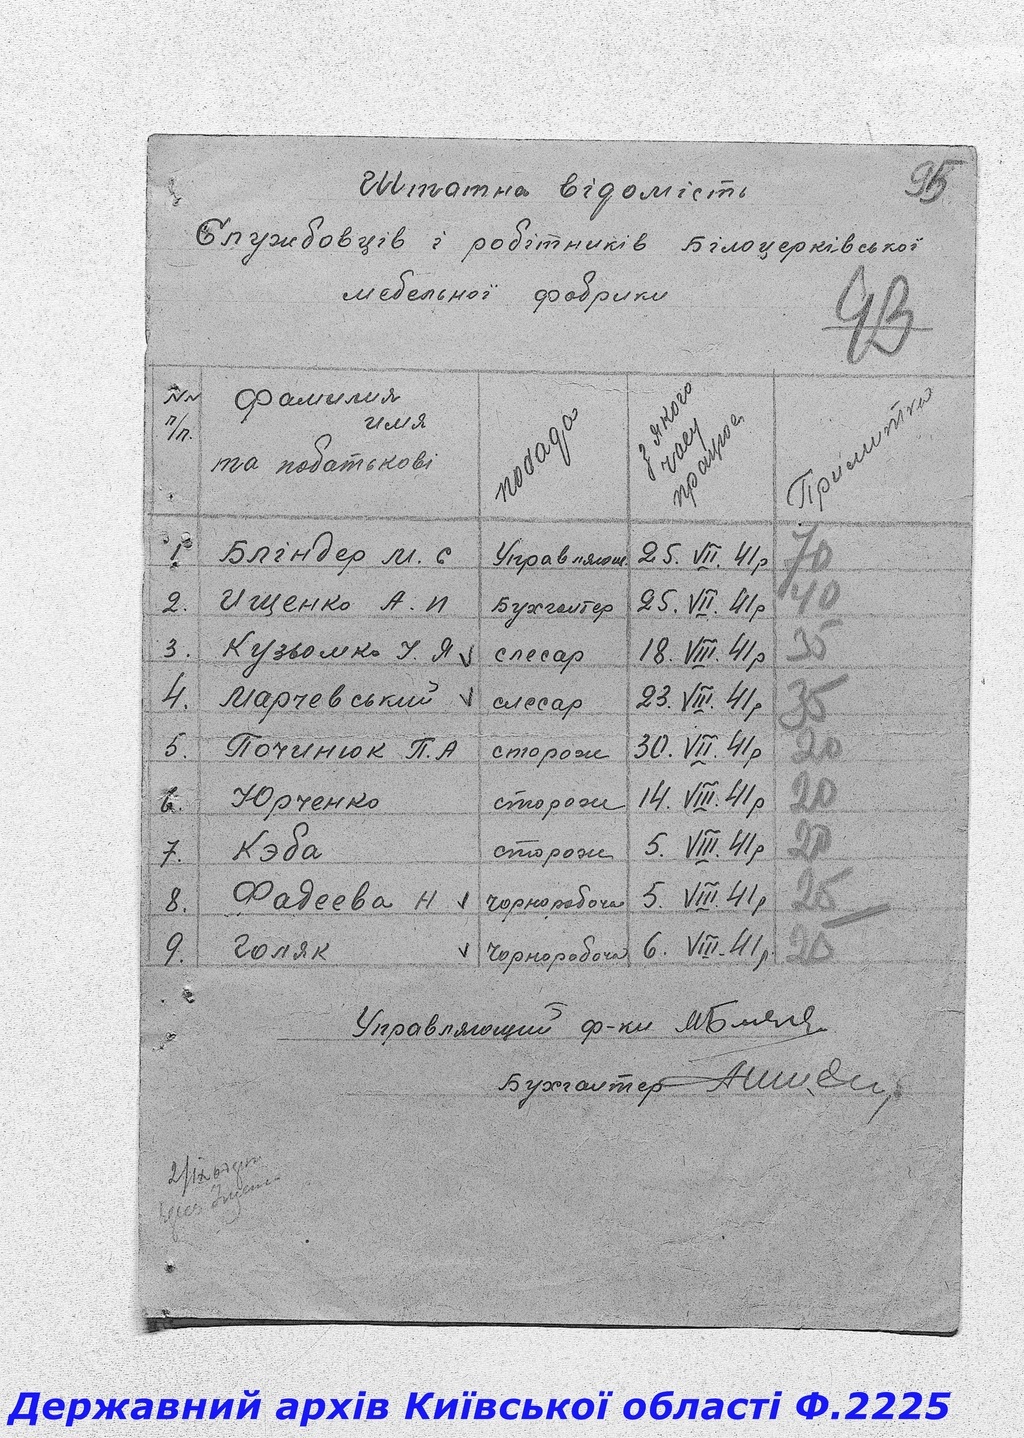 95
Штатна відомість
Службовців і робітників Білоцерківської
мебельної фабрики
93
№№ п/п. Фамилия имя та побатькові посада З якого часу працює Примитка
1 Бліндер М. С Управляющ. 25. VII. 41р 70
2. Ищенко А. П Бухгалтер 25. VII. 41р 40
3. Кузьомко У. Я ✓ слесар 18. VIII. 41р 35
4. Марчевський ✓ слесар 23. VIII. 41р 35
5. Починюк П. А сторож 30. VII. 41р 20
6. Юрченко сторож 14. VIII. 41р 20
7. Кэба сторож 5. VIII. 41р 20
8. Фадеева Н ✓ чорноробоча 5. VIII. 41р 25
9. Голяк ✓ чорноробоча 6. VIII. 41р. 20
Управляющий ф-ки
Бухгалтер
Державний архів Київської області Ф.2225